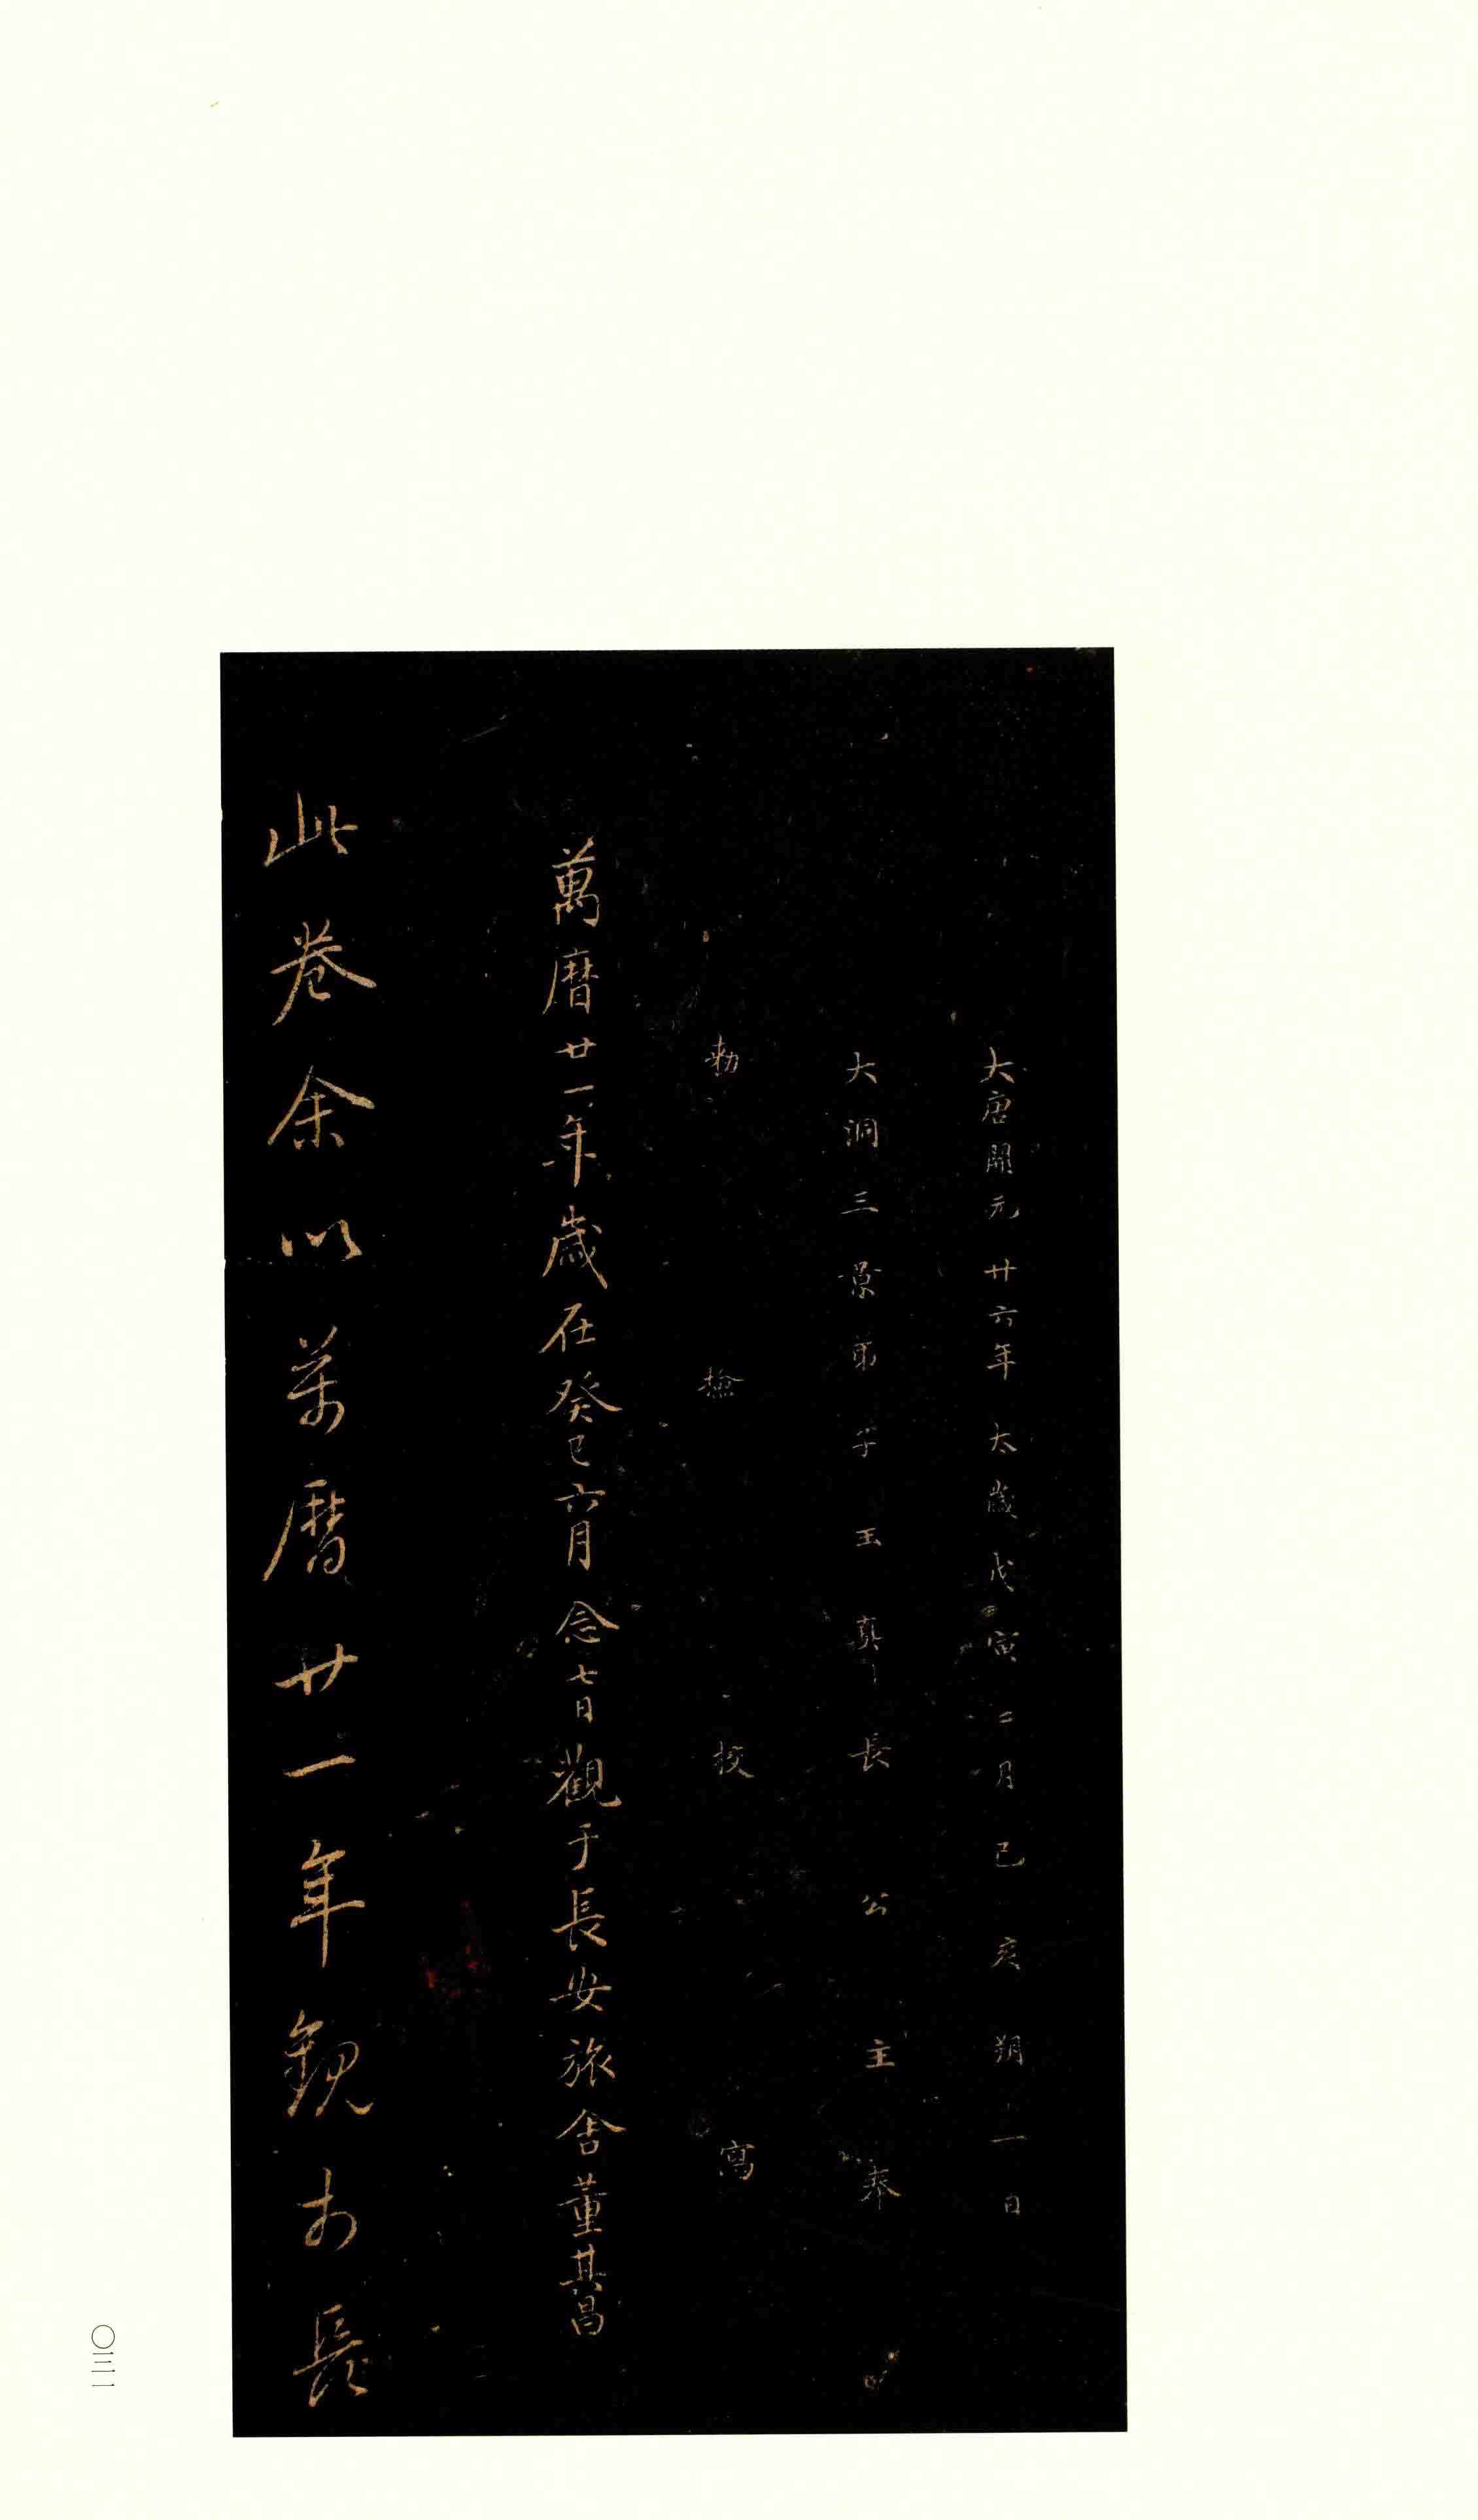 大唐開元廿六年太歲戊寅二月己亥朔一日
大洞三景弟子玉真長公主奉
勑檢校寫
萬曆廿一年歲在癸巳六月念七日觀于長安旅舍董其昌
此卷余以萬曆廿一年觀於長
〇三二